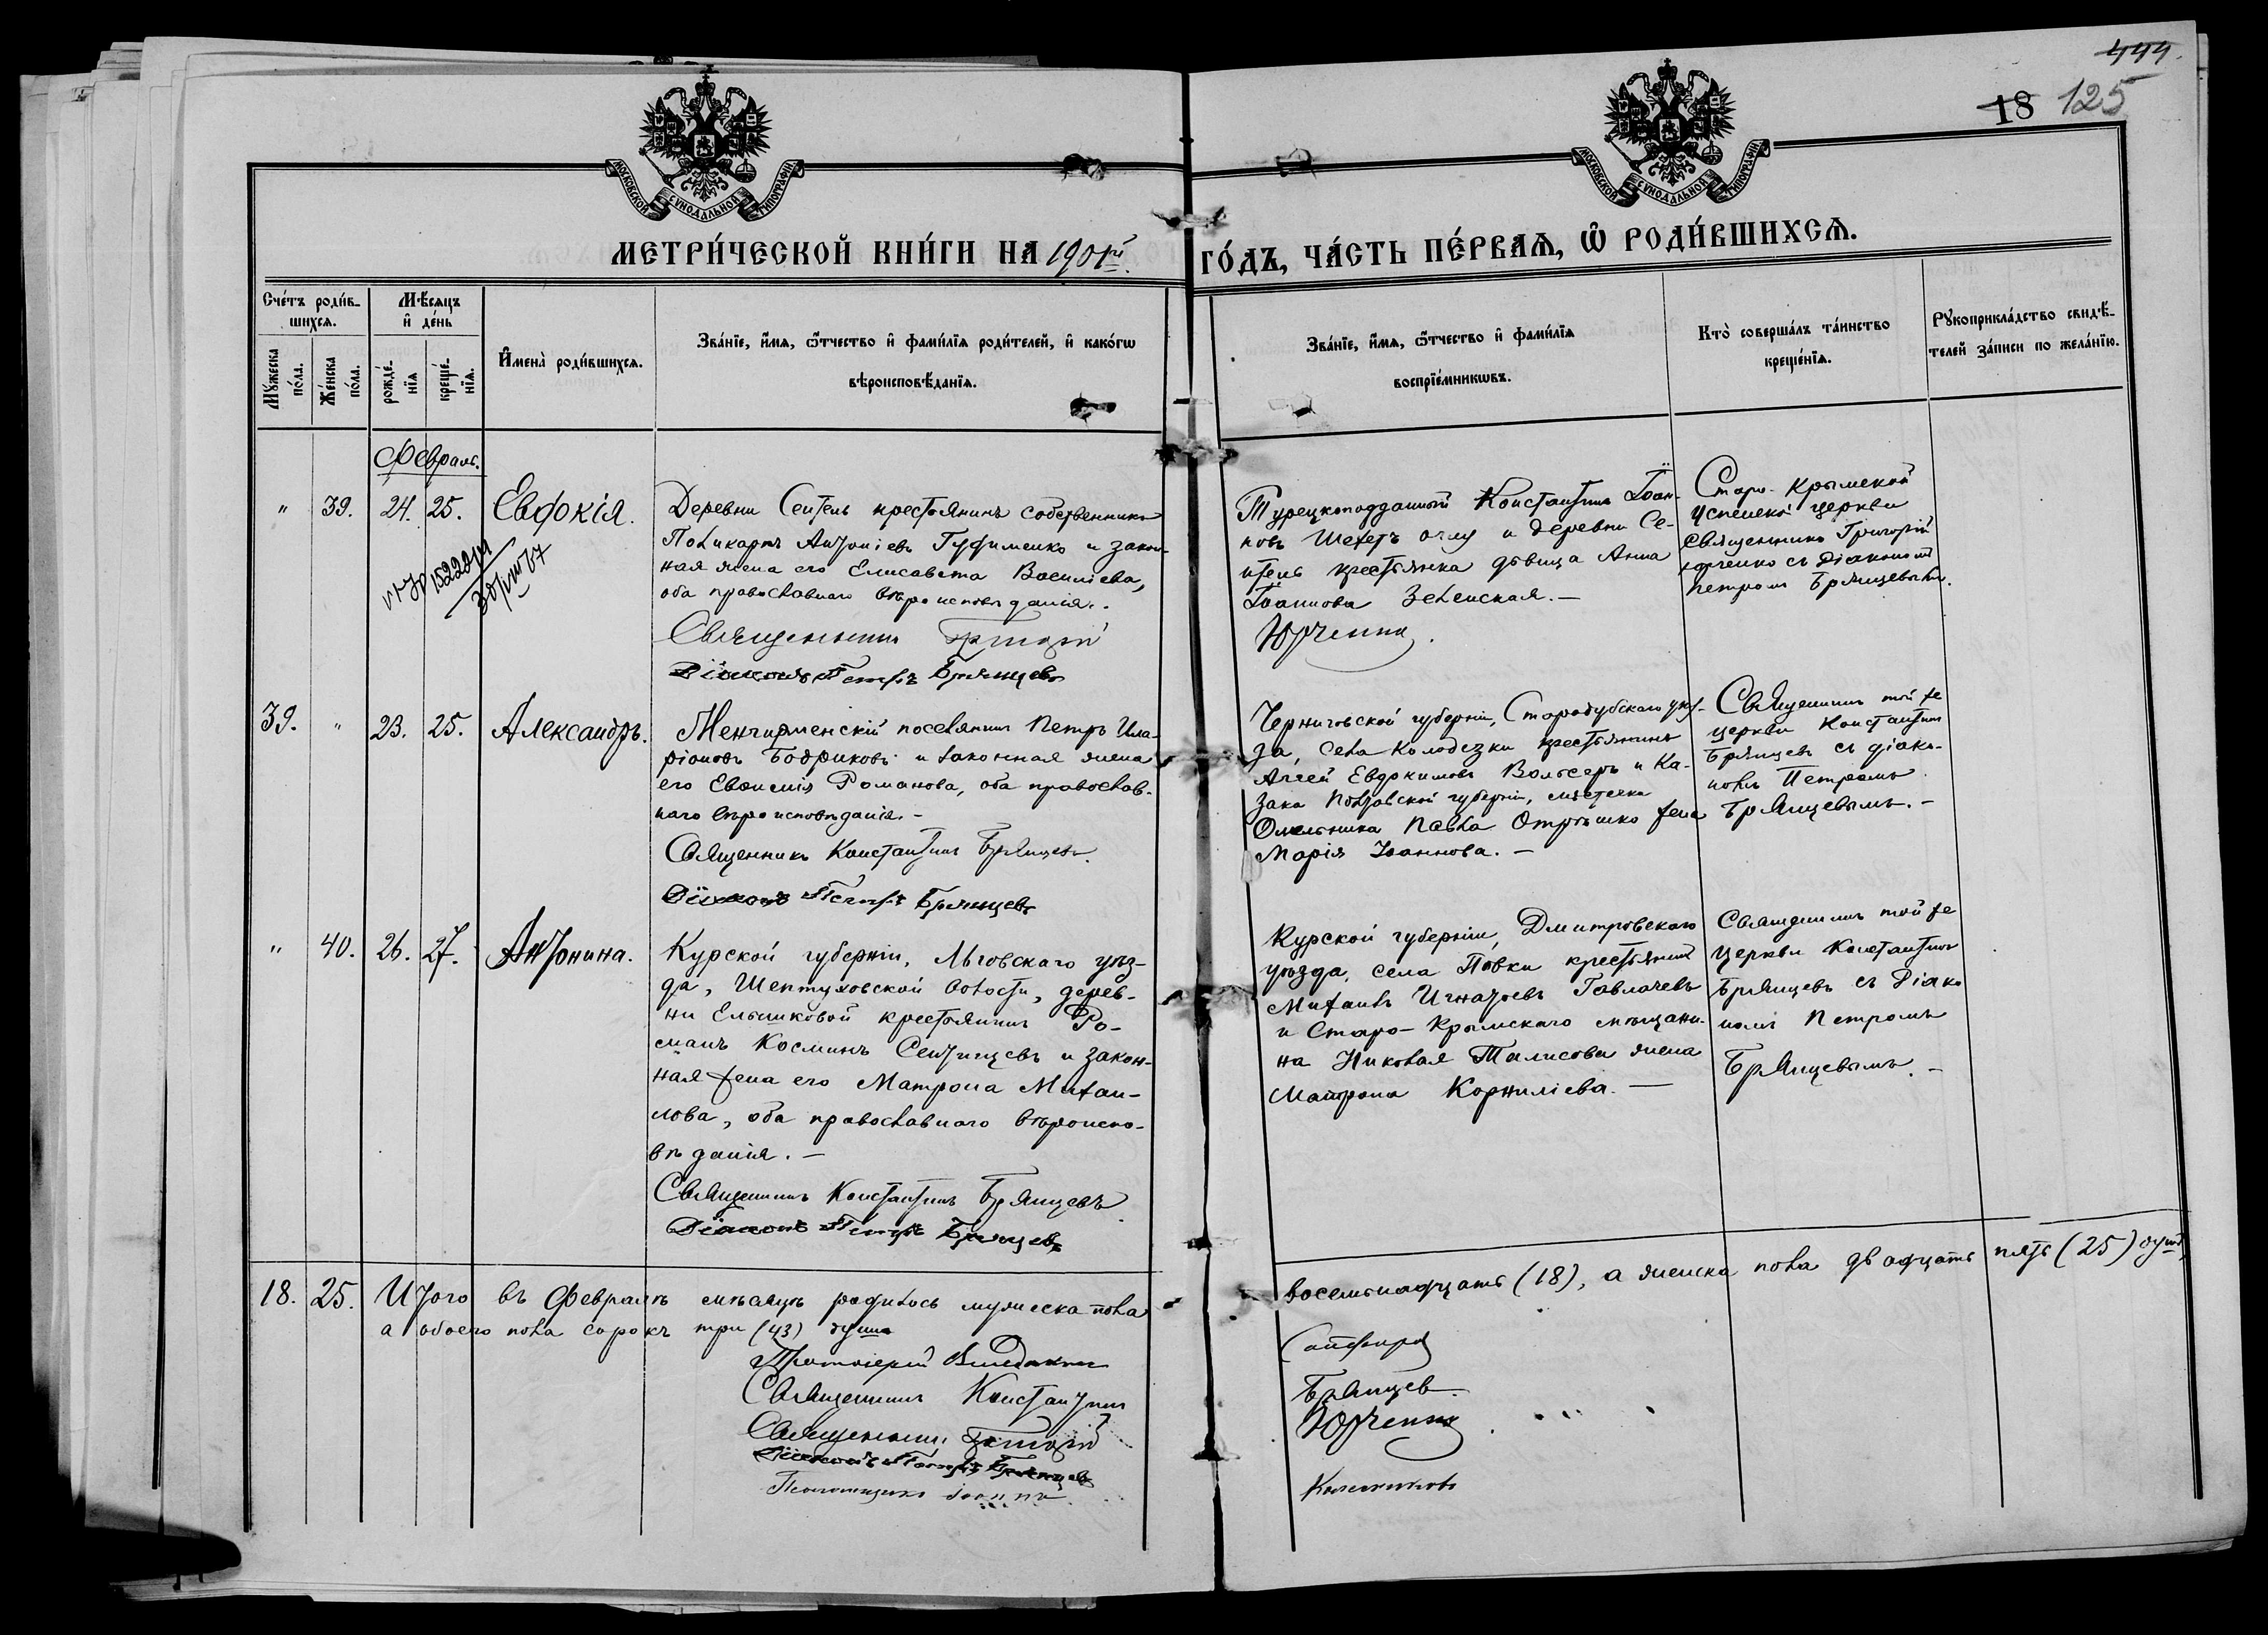 444.
18 125
МОСКОВСКОЙ СУНОДАЛЬНОЙ ТИПОГРАФІИ
МОСКОВСКОЙ СУНОДАЛЬНОЙ ТИПОГРАФІИ
МЕТРИ́ЧЕСКОЙ КНИ́ГИ НА 1901й
ГО́ДЪ, ЧА́СТЬ ПЕ́РВАѦ, Ѽ РОДИ́ВШИХСѦ.
Сче́тъ роди́в-
шихсѧ.
Мꙋ́жеска по́ла.
Же́нска по́ла.
Мѣ́сѧцъ
и҆ де́нь
рожде́-
нїѧ
креще́-
нїѧ.
И҆мена̀ роди́вшихсѧ.
Зва́нїе, и҆́мѧ, ѻ҆́тчество и҆ фами́лїѧ роди́телей, и҆ како́гѡ
вѣроисповѣ́данїѧ.
Зва́нїе, и҆́мѧ, ѻ҆́тчество и҆ фами́лїѧ
воспрїе́мникѡвъ.
Кто̀ соверша́лъ та́инство
креще́нїѧ.
Рꙋкоприкла́дство свидѣ́-
телей за́писи по жела́нїю.
Февраль.
" 39. 24. 25. Евдокія.
Деревни Сеитель крестьянинъ собственникъ
Поликарпъ Антоніевъ Гудименко и закон-
ная жена его Елисавета Василіева,
оба православнаго вѣроисповѣданія.
Священникъ Григорій
Діаконъ Петръ Брянцевъ
Турецкоподданный Константинъ Іоан-
новъ оглу и деревни Се-
итель крестьянка дѣвица Анна
Іоаннова Зеленская. —
Юрченко.
Старо-Крымской
Успенской церкви
Священникъ Григорій
Юрченко съ діакономъ
Петромъ Брянцевымъ.
39. " 23. 25. Александръ.
поселянинъ Петръ Ила-
ріоновъ Бодриковъ и законная жена
его Евфимія Романова, оба православ-
наго вѣроисповѣданія. —
Священникъ Константинъ Брянцевъ.
Діаконъ Петръ Брянцевъ
Черниговской губерніи, Стародубскаго уѣз-
да, села Колодезки крестьянинъ
Евдокимовъ и Ка-
зака Полтавской губерніи, мѣстечка
Омельника Павла жена
Марія Іоаннова. —
Священникъ той же
церкви Константинъ
Брянцевъ съ діако-
номъ Петромъ
Брянцевымъ. —
" 40. 26. 27. Антонина.
Курской губерніи, Льговскаго уѣз-
да, Шептуховской волости, дерев-
ни крестьянинъ Ро-
манъ Косминъ и закон-
ная жена его Матрона Михаи-
лова, оба православнаго вѣроиспо-
вѣданія. —
Священникъ Константинъ Брянцевъ
Діаконъ Петръ Брянцевъ
Курской губерніи, Дмитровскаго
уѣзда, села крестьянинъ
Михаилъ Игнатьевъ
и Старо-Крымскаго мѣщани-
на Николая жена
Матрона Корниліева. —
Священникъ той же
церкви Константинъ
Брянцевъ съ діако-
номъ Петромъ
Брянцевымъ. —
18. 25. Итого въ Февралѣ мѣсяцѣ родилось мужеска пола
восемнадцать (18), а женска пола двадцать пять (25) душъ,
а обоего пола сорокъ три (43) души
Протоіерей
Священникъ Константинъ Брянцев.
Священникъ Григорій Юрченко
Діаконъ Петръ Брянцевъ
Псаломщикъ Іоаннъ